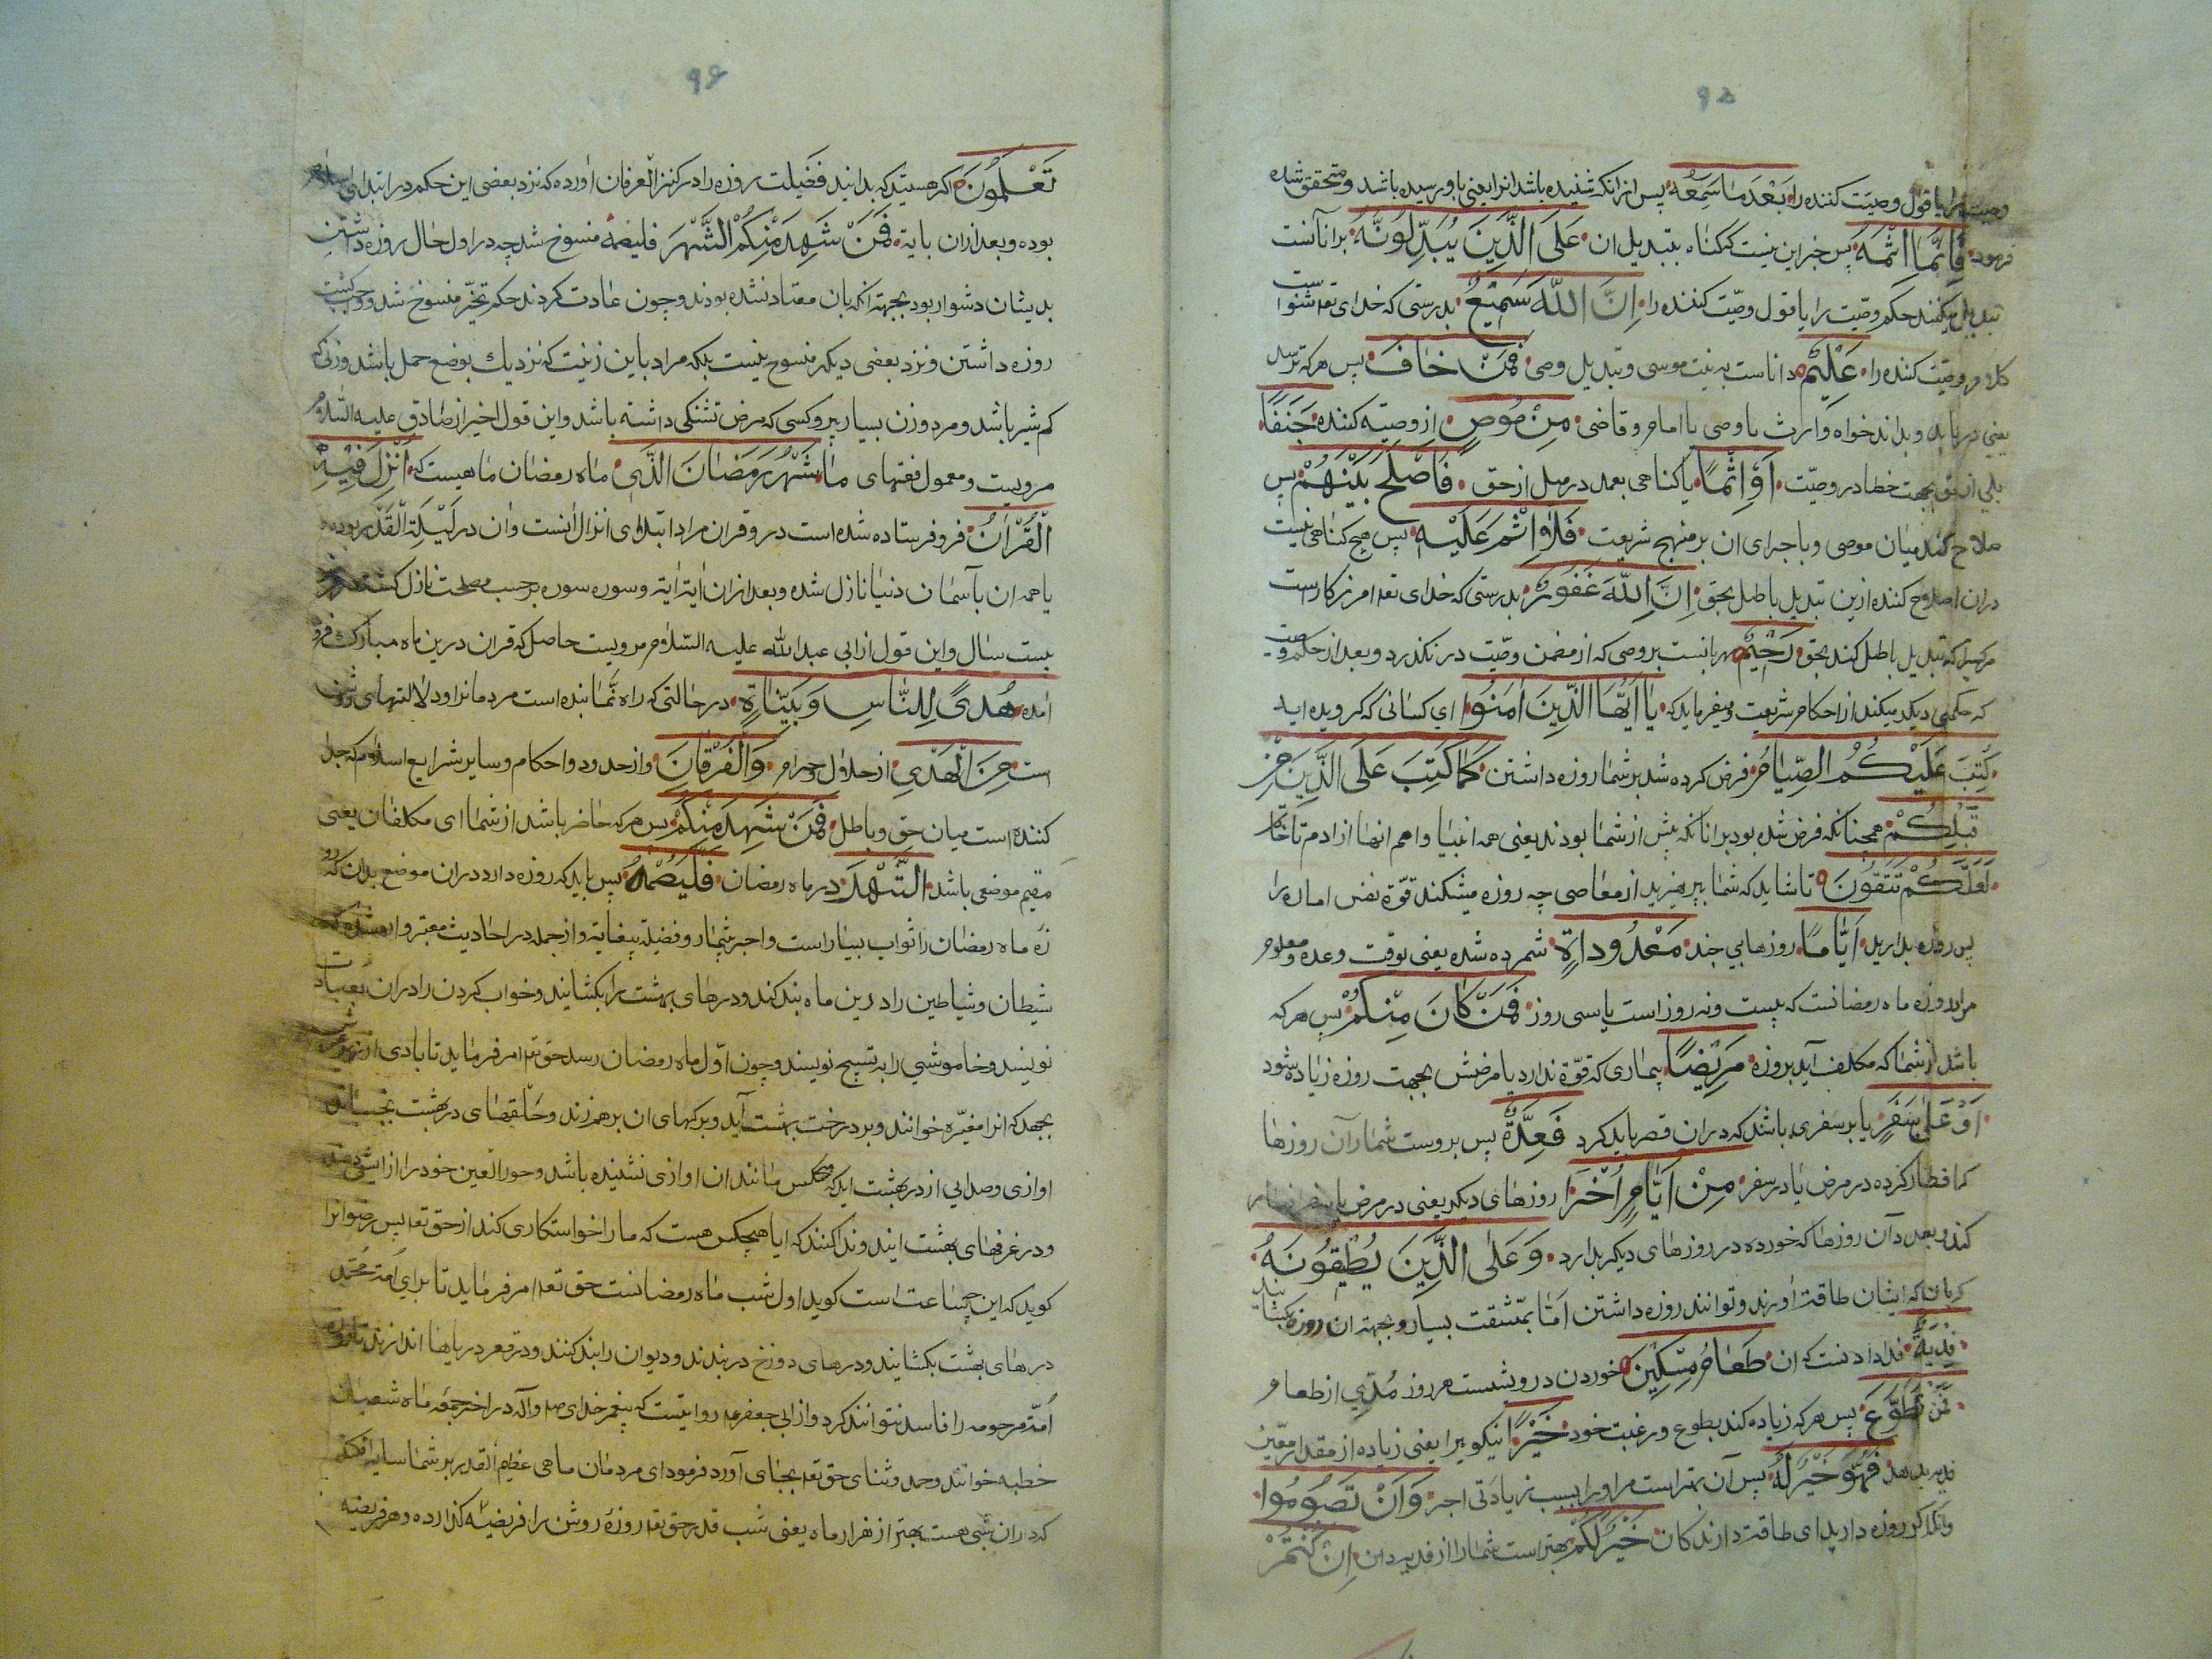 ۹۵
وصیت را یا قول وصیت کننده را بَعْدَ مَا سَمِعَهُ پس از انکه شنیده باشد انرا یعنی باو رسیده باشد و متحقق شده
فَاِنَّمَا اِثْمُهُ پس جز این نیست که کناه تبدیل ان عَلَی الَّذِینَ یُبَدِّلُونَهُ بر آنانست
تبدیل میکنند حکم وصیّت را یا قول وصیّت کننده را اِنَّ اللّهَ سَمِیعٌ بدرستی که خدای تعه شنواست
کلام وصیّت کننده را عَلِیمٌ داناست به نیت موصی و تبدیل وصی فَمَنْ خَافَ پس هر که ترسد
یعنی دریابد و بداند خواه وارث یا وصی یا امام و قاضی مِنْ مُوصٍ از وصیّه کننده جَنَفًا
میلی از حق بجهت خطا در وصیّت اَوْ اِثْمًا یا کناهی بعمد در میل از حق فَاَصْلَحَ بَیْنَهُمْ پس
صلاح کند میان موصی و با جرای ان بر منهج شریعت فَلَا اِثْمَ عَلَیْهِ پس هیچ کناهی نیست
دران اصلاح کننده ازین تبدیل باطل بحق اِنَّ اللّهَ غَفُورٌ بدرستی که خدای تعه امرزکارست
هر کسیرا که تبدیل باطل کند بحق رَحِیمٌ مهربانست بر وصی که از مضمن وصیّت در نکذرد و بعد از حکم وصیت
که حکمی دیکر میکند از احکام شریعت و میفرماید که یَا اَیُّهَا الَّذِینَ اٰمَنُوا ای کسانی که کرویده اید
کُتِبَ عَلَیْکُمُ الصِّیَامُ فرض کرده شد بر شما روزه داشتن کَمَا کُتِبَ عَلَی الَّذِینَ مِنْ
قَبْلِکُمْ همچنانکه فرض شده بود بر انانکه پیش از شما بودند یعنی همه انبیا و امم انها از ادم تا خاتم
لَعَلَّکُمْ تَتَّقُونَ تا شاید که شما بپرهیزید از معاصی چه روزه میشکند قوّة نفس اماره را
پس روزه بدارید اَیَّامًا روزهایی چند مَعْدُودَاتٍ شمرده شده یعنی بوقت و عده معلوم
مراد روزه ماه رمضانست که بیست و نه روز است یا سی روز فَمَنْ کَانَ مِنْکُمْ پس هر که
باشد از شما که مکلف آید بروزه مَرِیضًا بیماری که قوّة ندارد یا مرضش بجهت روزه زیاده شود
اَوْ عَلَی سَفَرٍ یا بر سفری باشد که دران قصر باید کرد فَعِدَّةٌ پس بروست شمار آن روزها
که افطار کرده در مرض یا در سفر مِنْ اَیَّامٍ اُخَرَ از روزهای دیکر یعنی در مرض یا سفر افطار
کند و بعدد آن روزها که خورده در روزهای دیکر بدارد وَ عَلَی الَّذِینَ یُطِیقُونَهُ
که ایشان طاقت اورند و توانند روزه داشتن امّا بمشقت بسیار و بجهة ان روزه بکشایند
فِدْیَةٌ فدا دادنست که ان طَعَامُ مِسْکِینٍ خوردن درویشست هر روز مُدّی از طعام
فَمَنْ تَطَوَّعَ پس هر که زیاده کند بطوع و رغبت خود خَیْرًا نیکویی را یعنی زیاده از مقدار معیّن
فدیه بدهد فَهُوَ خَیْرٌ لَهُ پس آن بهتر است مر او را بسبب زیادتی اجر وَاَنْ تَصُومُوا
وانکه روزه دارید ای طاقت دارندکان خَیْرٌ لَکُمْ بهتر است شما را از فدیه دادن اِنْ کُنْتُمْ
۹۶
تَعْلَمُونَ اکر هستید که بدانید فضیلت روزه را در کنز العرفان اورده که نزد بعضی این حکم در ابتدای اسلام
بوده و بعد ازان بایة فَمَنْ شَهِدَ مِنْکُمُ الشَّهْرَ فَلْیَصُمْهُ منسوخ شد چه در اول حال روزه داشتن
بدیشان دشوار بود بجهة انکه بان معتاد نشده بودند و چون عادت کردند حکم تخیّر منسوخ شد و واجب کشت
روزه داشتن و نزد بعضی دیکر منسوخ نیست بلکه مراد باین زنیست که نزدیك بوضع حمل باشد و زنی که
کم شیر باشد و مرد و زن بسیار پیر و کسی که مرض تشنکی داشته باشد و این قول اخیر از صادق علیه السّلام
مرویست و معمول فقهای ما شَهْرُ رَمَضَانَ الَّذِی ماه رمضان ماهیست که اُنْزِلَ فِیهِ
الْقُرْاٰنُ فرو فرستاده شده است درو قران مراد ابتدای انزال انست و ان در لَیْلَةِ الْقَدْرِ بوده
یا همه ان بآسمان دنیا نازل شده و بعد ازان ایة ایة و سوره سوره برحسب مصلحت نازل کشته
بیست سال و این قول از ابی عبد اللّه علیه السّلام مرویست حاصل که قران درین ماه مبارك فرو
امده هُدًی لِلنَّاسِ وَ بَیِّنَاتٍ در حالتی که راه نماینده است مردمانرا و دلالتهای روشن
است مِنَ الْهُدَی از حلال و حرام وَالْفُرْقَانِ و از حدود و احکام و سایر شرایع اسلام که جدا
کننده است میان حق و باطل فَمَنْ شَهِدَ مِنْکُمُ پس هر که حاضر باشد از شما ای مکلفان یعنی
مقیم موضعی باشد الشَّهْرَ در ماه رمضان فَلْیَصُمْهُ پس باید که روزه دارد دران موضع بدان که
زه ماه رمضان را ثواب بسیار است و اجر بیشمار و فضیلة بیغایة و از جمله در احادیث معتبر وارد شده که
شیطان و شیاطین را درین ماه بند کند و درهای بهشت را بکشایند و خواب کردن را دران بعبادت
نویسند و خاموشی را به تسبیح نویسند و چون اوّل ماه رمضان رسد حق تعه امر فرماید تا بادی از زیر عرش
بجهد که انرا مغیّره خوانند و بر درخت بهشت آید و برکهای ان برهم زند و حلقهای در بهشت بجنباند
اوازی و صدایی از در بهشت اید که هیچکس مانند ان اوازی نشنیده باشد و حور العین خود را از
و در غرفهای بهشت ایند و ندا کنند که ایا هیچکس هست که ما را خواستکاری کند از حق تعه پس رضوانرا
کوید که این چه ساعت است کوید اول شب ماه رمضانست حق تعه امر فرماید تا برای امة محمّد
درهای بهشت بکشایند و درهای دوزخ در بندند و دیوان را بند کنند و در قعر دریاها اندازند تا روزه
اُمّة مرحومه را فاسد نتوانند کرد و از ابی جعفر عه روایتست که پیغمر خدای صه و آله در اخر جمعه ماه شعبان
خطبه خوانند و حمد و ثنای حق تعه بجای آورد فرمود ای مردمان ماهی عظیم القدر بر شما سایه افکند
که دران شبی هست بهتر از هزار ماه یعنی شب قدر حق تعه روزهٔ روشن را فریضه کذارده و هر فریضه